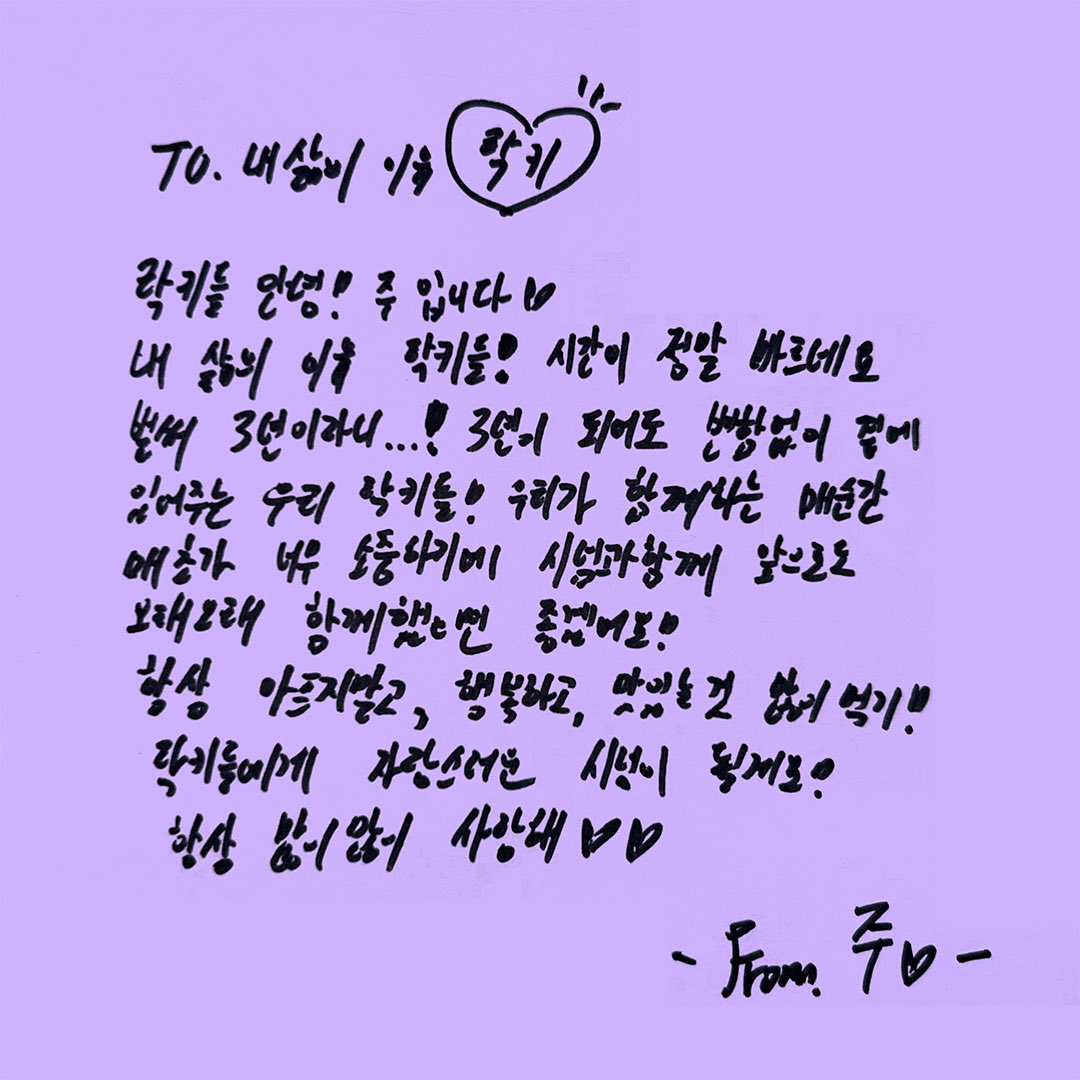 TO. 내 삶의 이유 락키
락키들 안녕! 주 입니다♡
내 삶의 이유 락키들! 시간이 정말 빠르네요
벌써 3년이라니...! 3년이 되어도 변함없이 곁에
있어주는 우리 락키들! 우리가 함께하는 매순간
매초가 너무 소중하기에 시넝과함께 앞으로도
오래오래 함께했으면 좋겠어요!
항상 아프지말고, 행복하고, 맛있는것 많이 먹기!
락키들에게 자랑스러운 시넝이 될게요!
항상 많이많이 사랑해♡♡
- From. 주♡ -